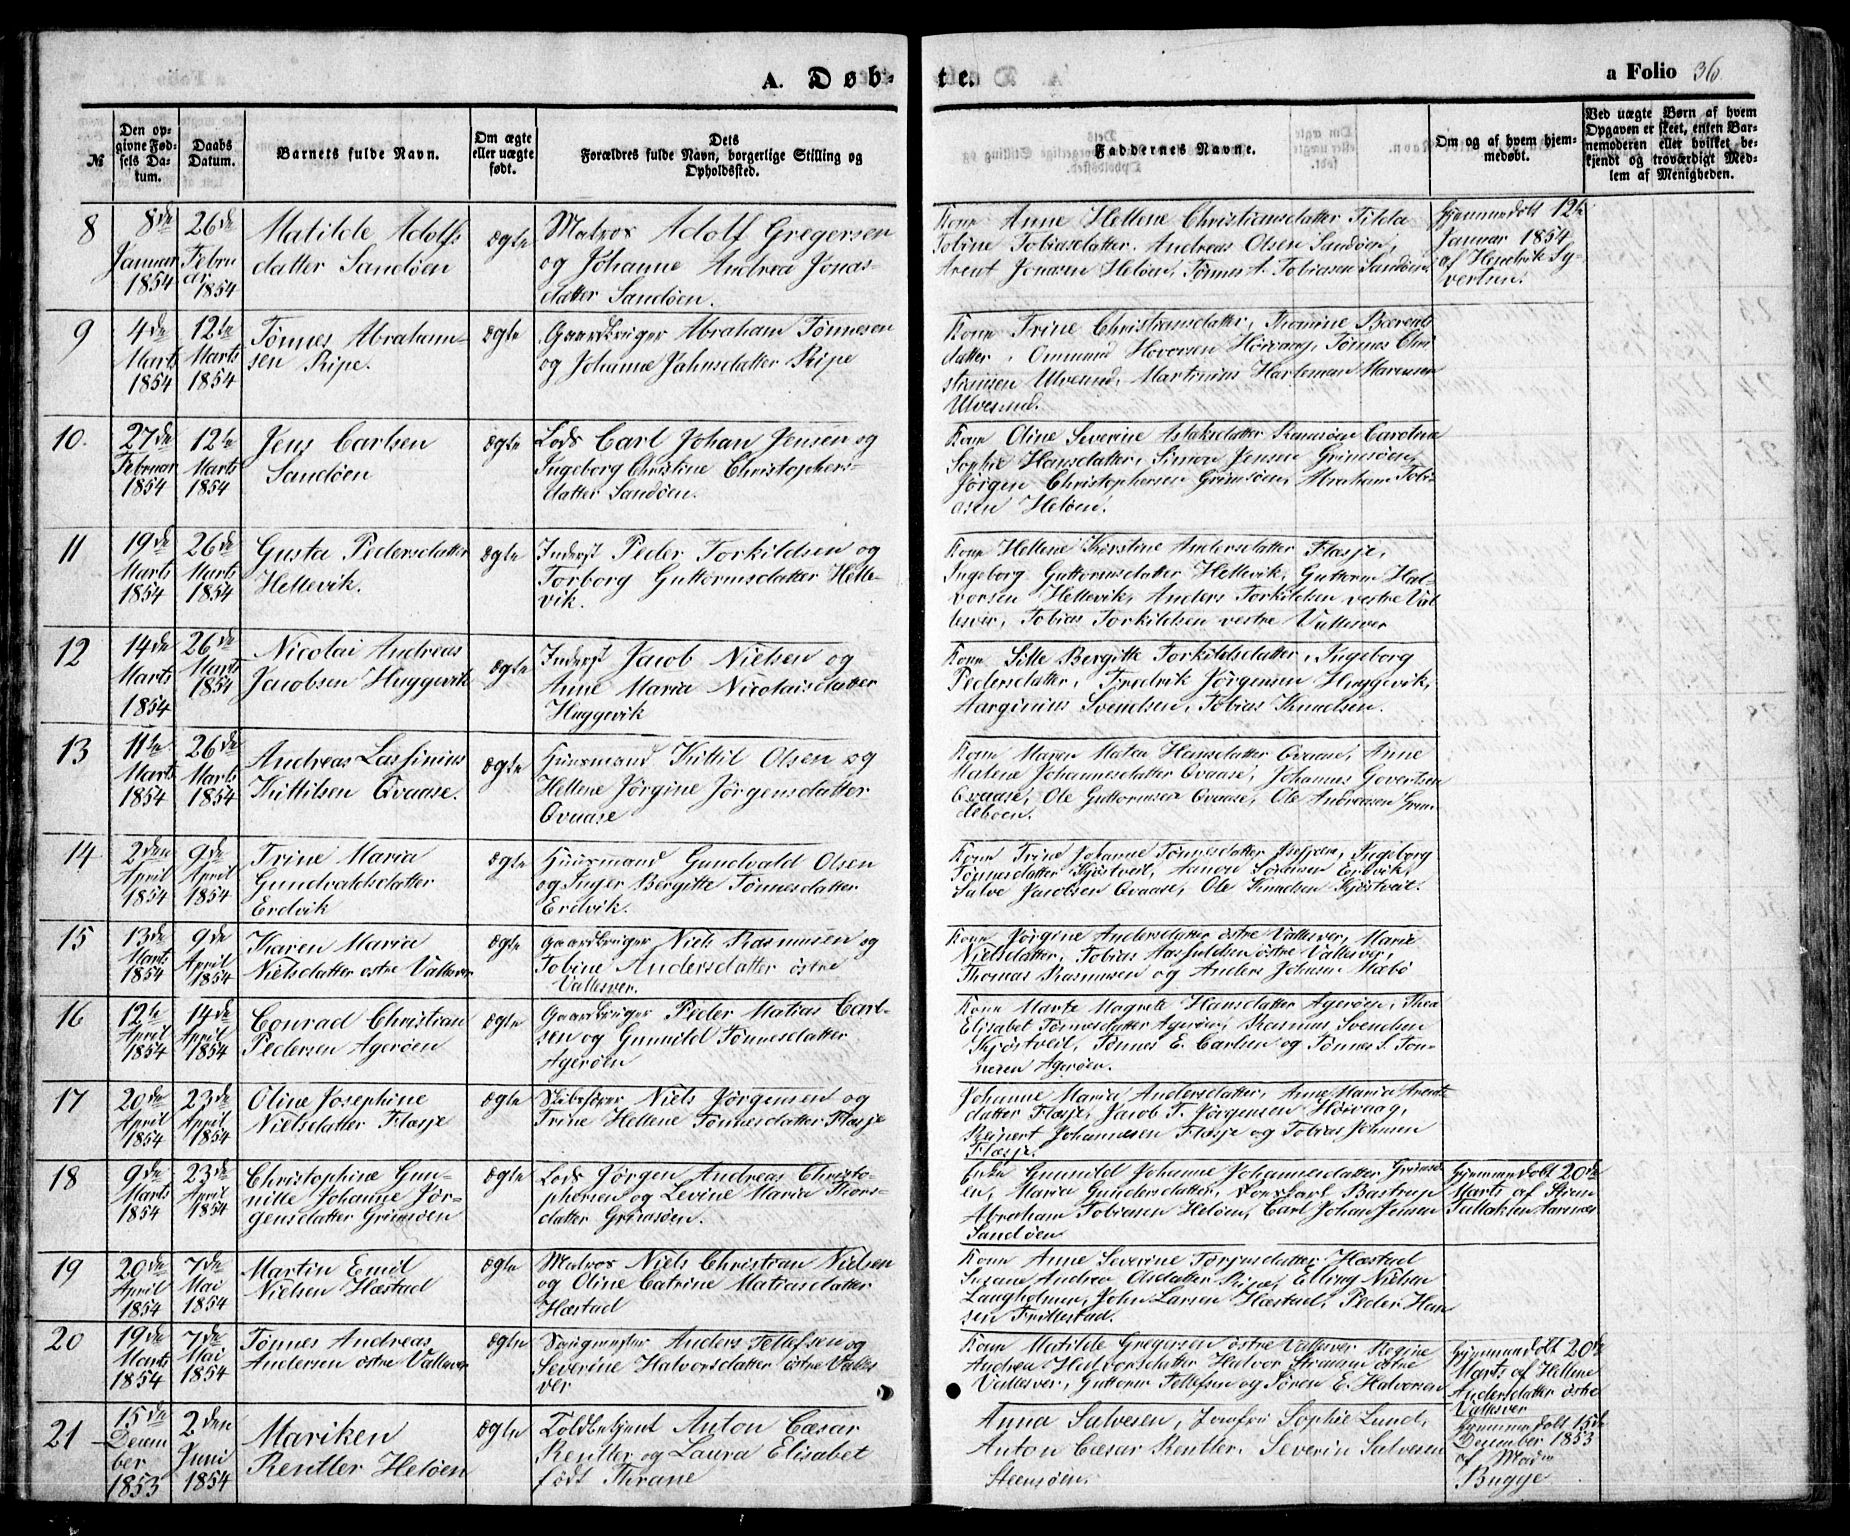 A. Døb-
te.
a Folio 36.
№
Den opgivne Fødsels Datum.
Daabs Datum.
Barnets fulde Navn.
Om ægte eller uægte født.
Dets Forældres fulde Navn, borgerlige Stilling og Opholdssted.
Faddernes Navne.
Om og af hvem hjemmedøbt.
Ved uægte Børn af hvem Opgaven er skeet, enten Barnemoderen eller hvilket bekjendt og troværdigt Medlem af Menigheden.
8
8de Januar 1854
26de Februar 1854
Matilde Adolfs
datter Sandøen
ægte
Matros Adolf Gregersen
og Johanne Andrea Jonas-
datter Sandøen.
Kone Anne Hellene Christiansdatter Tilda
Tobine Tobiasdatter. Andreas Olsen Sandøen,
Arent Jonsen Heløen, Tønnes A. Tobiasen Sandøen
Hjemmedøbt 12te
Januar 1854
af Hendrik Sy-
vertsen.
9
4de Marts 1854
12te Marts 1854
Tønnes Abraham-
sen Ripe.
ægte
Gaardbruger Abraham Tønnesen
og Johanne Jahnsdatter Ripe
Kone Trine Christiansdatter, Thomine Berents
datter, Ommund Hovorsen Hørvaag, Tønnes Chri
stiansen Ulvesund, Martinius Harleman Marensen
Ulvesund.
10.
27de Februar 1854
12te Marts 1854
Jens Carlsen
Sandøen
ægte
Lods Carl Johan Jensen og
Ingeborg Christine Christophers-
datter Sandøen.
Kone Oline Severine Aslaksdatter Ramsøen Carolina
Sophie Hansdatter, Simon Jensen Grimsøen,
Jørgen Christophersen Grimsøen, Abraham Tobi-
asen Heløen.
11
19de Marts 1854
26de Marts 1854
Gusta Pedersdatter
Hellevik.
ægte
Inderst Peder Torkildsen og
Torborg Guttormsdatter Helle-
vik.
Kone Hellene Kirstine Andersdatter Flasje,
Ingeborg Guttormsdatter Hellevik, Guttorm Hal-
vorsen Hellevik, Anders Torkildsen vestre Val
lesver, Tobias Torkildsen vestre Vallesver
12
14de Marts 1854
26de Marts 1854
Nicolai Andreas
Jacobsen Huggevik
ægte
Inderst Jacob Nielsen og
Anne Maria Nicolaisdatter
Huggevik
Kone Sille Bergitte Torkildsdatter, Ingeborg
Pedersdatter, Fredrik Jørgensen Huggevik,
Aarginius Svendsen, Tobias Knudsen.
13
11te Marts 1854
26de Marts 1854
Andreas Lassinius
Kittilsen Qvaase.
ægte
Huusmand Kittil Olsen og
Hellene Jørgine Jørgensdatter
Qvaase
Kone Maren Matea Hansdatter Qvaase, Anne
Malene Johannesdatter Qvaase, Johannes Govertsen
Qvaase, Ole Guttormsen Qvaase, Ole Andreasen Grun
deboen.
14
2den April 1854
9de April 1854
Trine Maria
Gundvaldsdatter
Erdvik
ægte
Huusmand Gundvald Olsen
og Inger Bergitte Tønnesdatter
Erdvik.
Kone Trine Johanne Tønnesdatter Isefjæren, Ingeborg
Tønnesdatter Kjøstveit, Aanon Sørensen Erdvik,
Salve Jacobsen Qvaase, Ole Knudsen Kjøstveit.
15
13de Marts 1854
9de April 1854
Karen Maria
Nielsdatter østre Vallesver
ægte
Gaardbruger Niels Rasmusen og
Tobine Andersdatter østre
Vallesver.
Kone Jørgine Andersdatter østre Vallesver, Marie
Nielsdatter, Tobias Aasuldsen østre Vallesver,
Thomas Rasmusen og Anders Johnsen Mæbø
16
12te April 1854
14de April 1854
Conrad Christian
Pedersen Agerøen
ægte
Gaardbruger Peder Matias Carl-
sen og Gunnild Tønnesdatter
Agerøen
Kone Marte Magrete Hansdatter Agerøen, Thea
Elisabet Tønnesdatter Agerøen, Rasmus Svendsen
Kjøstveit, Tønnes E. Carlsen og Tønnes S. Tøn-
nesen Agerøen.
17
20de April 1854
23de April 1854
Oline Josephine
Nielsdatter Flasje
ægte
Skibsfører Niels Jørgensen og
Trine Hellene Tønnesdatter Flasje
Johanne Maria Andersdatter, Anne Maria Arents
datter Flasje, Jacob T. Jørgensen Hørvaag,
Reinert Johannesen Flasje og Tobias Johnsen
Flasje.
18
9de Marts 1854
23de April 1854
Christophine Gun-
nille Johanne Jør-
gensdatter Grimsøen
ægte
Lods Jørgen Andreas Christo-
phersen og Levine Maria Thors-
datter Grimsøen.
Enke Gunnild Johanne Johannesdatter Grimsø
en, Maria Gundersdatter, Bastrup
Abraham Tobiasen Heløen, Carl Johan Jensen
Sandøen
Hjemmedøbt 20de
Marts af Stian
Tallaksen Aarsnes
19
20de April 1854
7de Mai 1854
Martin Emil
Nielsen Hæstad
ægte
Matros Niels Christian Nielsen
og Oline Catrine Matiasdatter
Hæstad
Kone Anne Severine Torjusdatter Hæstad
Susane Andrea Olsdatter Ripe, Elling Nielsen
Langholmen, John Larsen Hæstad, Peder Han
sen Frillestad.
20
19de Marts 1854
7de Mai 1854
Tønnes Andreas
Andersen østre Vallesver
ægte
Anders Tellefsen og
Severine Halvorsdatter østre Valles
ver
Kone Matilde Gregersen østre Vallesver Regine
Andrea Halvorsdatter Halvor Stiansen østre
Vallesver, Guttorm Tellefsen og Søren E. Halvorsen
Hjemmedøbt 20de
Marts af Hellene
Andersdatter østre
Vallesver
21
15de December 1853
2den Juni 1854
Mariken
Rentler Heløen
ægte
Toldbetjent Anton Cæsar
Rentler og Laura Elisabet
født Thrane
Anna Salvesen, Jomfru Sophie Lund,
Anton Cæsar Rentler, Severin Salvesen
Steensøen.
Hjemmedøbt 15de
December 1853
af Madm
Bugge